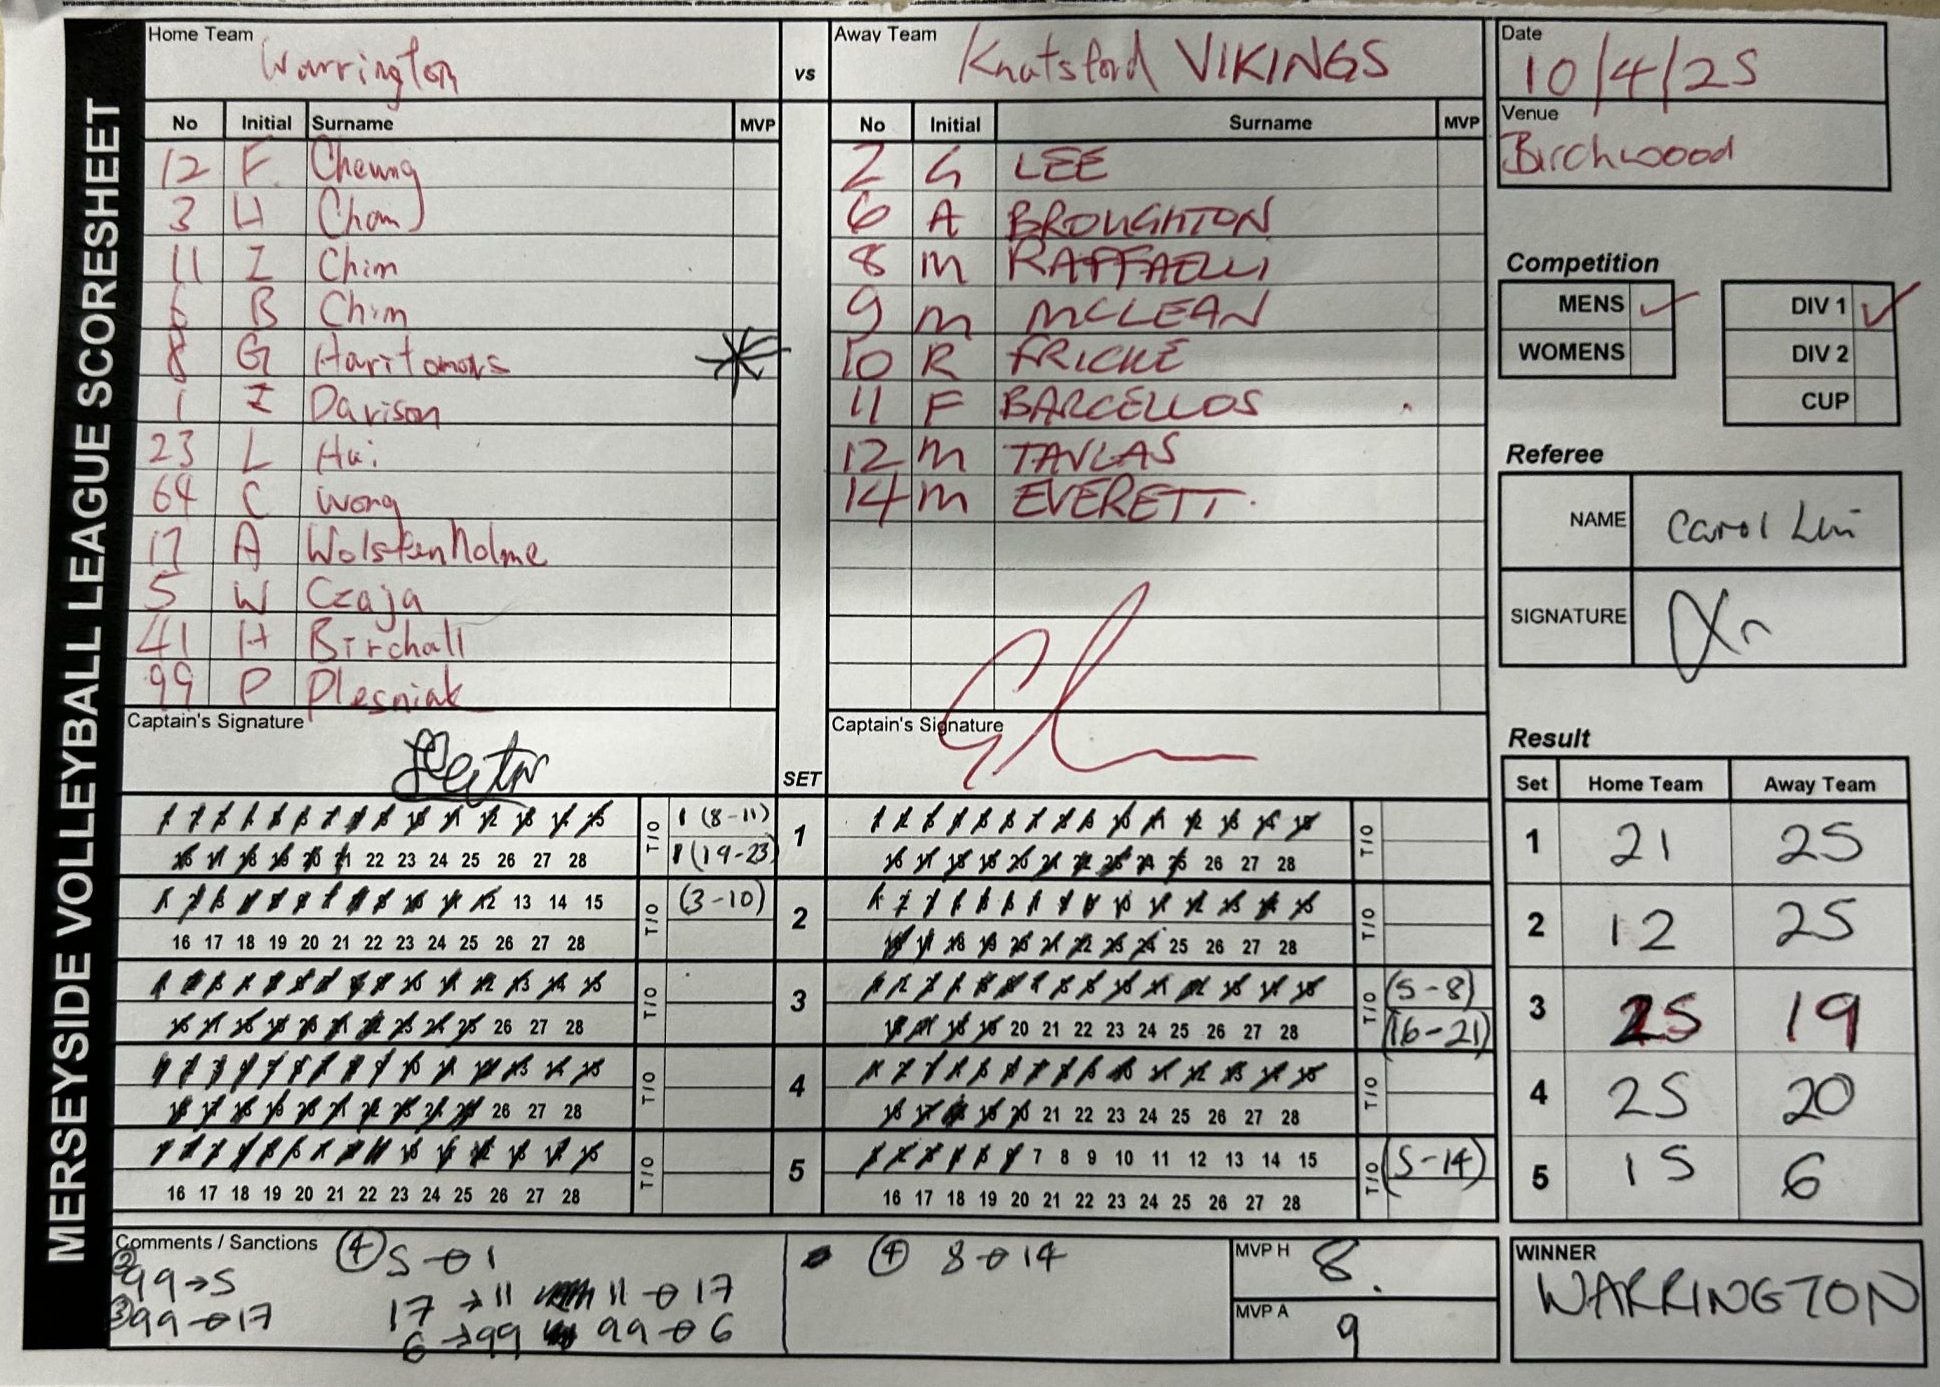 MERSEYSIDE VOLLEYBALL LEAGUE SCORESHEET
Home Team
Warrington
vs
Away Team
Knutsford VIKINGS
Date
10/4/25
Venue
Birchwood
No Initial Surname MVP
12 F. Cheung
3 H Chan
11 I Chim
6 B Chim
8 G
1 I Davison
23 L Hui
64 C Wong
17 A Wolstenholme
5 W Czaja
41 H Birchall
99 P Plesniak
Captain's Signature
No Initial Surname MVP
2 G LEE
6 A BROUGHTON
8 M RAFFAELLI
9 M MCLEAN
10 R FRICKE
11 F BARCELLOS
12 M TAVLAS
14 M EVERETT.
Captain's Signature
Competition
MENS ✓
WOMENS
DIV 1 ✓
DIV 2
CUP
Referee
NAME Carol Lin
SIGNATURE
SET
1 2 3 4 5 6 7 8 9 10 11 12 13 14 15 T/O 1 (8-11) 1 1 2 3 4 5 6 7 8 9 10 11 12 13 14 15 T/O
16 17 18 19 20 21 22 23 24 25 26 27 28 1 (19-23) 16 17 18 19 20 21 22 23 24 25 26 27 28
1 2 3 4 5 6 7 8 9 10 11 12 13 14 15 T/O (3-10) 2 1 2 3 4 5 6 7 8 9 10 11 12 13 14 15 T/O
16 17 18 19 20 21 22 23 24 25 26 27 28 16 17 18 19 20 21 22 23 24 25 26 27 28
1 2 3 4 5 6 7 8 9 10 11 12 13 14 15 T/O 3 1 2 3 4 5 6 7 8 9 10 11 12 13 14 15 T/O (5-8)
16 17 18 19 20 21 22 23 24 25 26 27 28 16 17 18 19 20 21 22 23 24 25 26 27 28 (16-21)
1 2 3 4 5 6 7 8 9 10 11 12 13 14 15 T/O 4 1 2 3 4 5 6 7 8 9 10 11 12 13 14 15 T/O
16 17 18 19 20 21 22 23 24 25 26 27 28 16 17 18 19 20 21 22 23 24 25 26 27 28
1 2 3 4 5 6 7 8 9 10 11 12 13 14 15 T/O 5 1 2 3 4 5 6 7 8 9 10 11 12 13 14 15 T/O (5-14)
16 17 18 19 20 21 22 23 24 25 26 27 28 16 17 18 19 20 21 22 23 24 25 26 27 28
Result
Set Home Team Away Team
1 21 25
2 12 25
3 25 19
4 25 20
5 15 6
Comments / Sanctions
② 99→5
③ 99→17
④ 5→1
17→11 11→17
6→99 99→6
④ 8→14
MVP H 8.
MVP A 9
WINNER
WARRINGTON